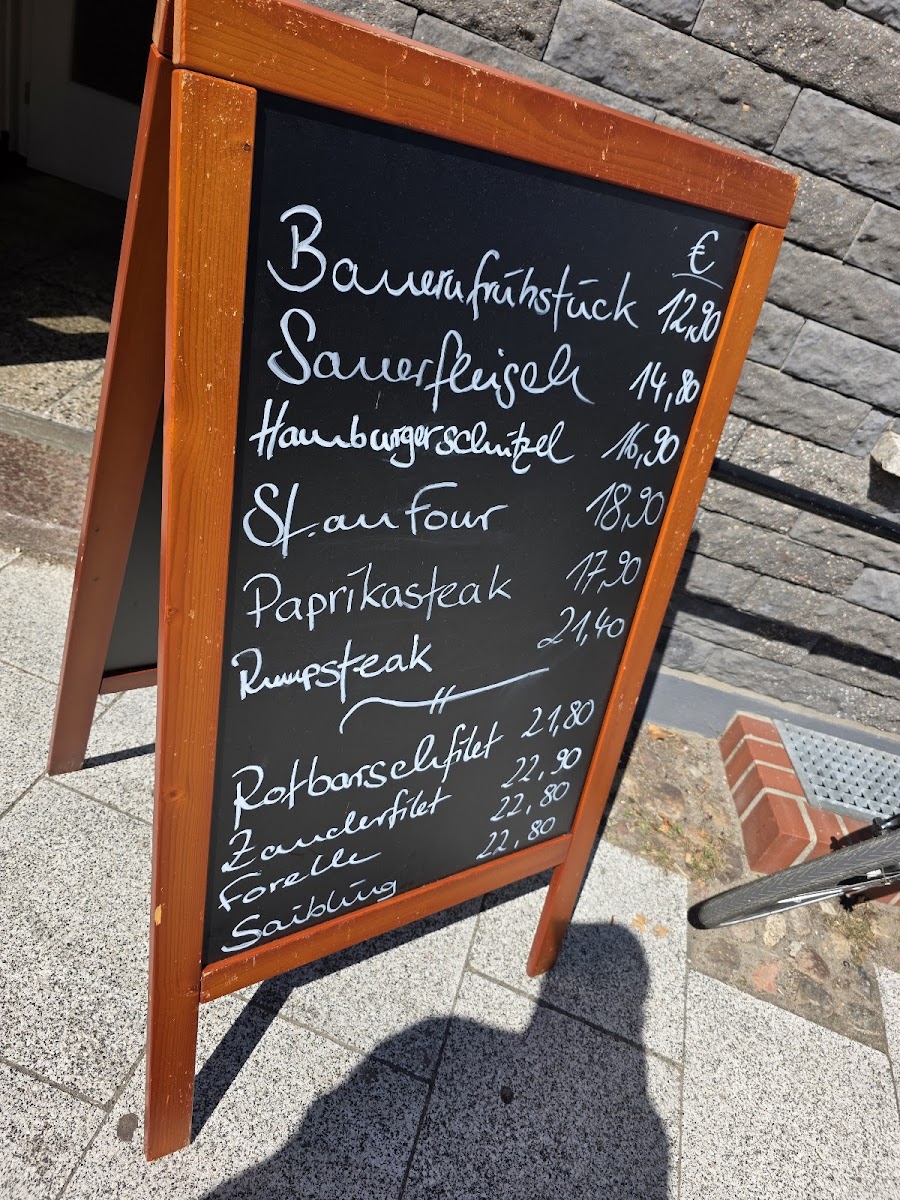 €
Bauernfrühstück 12,90
Sauerfleisch 14,80
Hamburgerschnitzel 16,90
St. au Four 18,90
Paprikasteak 17,90
Rumpsteak 21,40
Rotbarschfilet 21,80
Zanderfilet 22,90
Forelle 22,80
Saibling 22,80